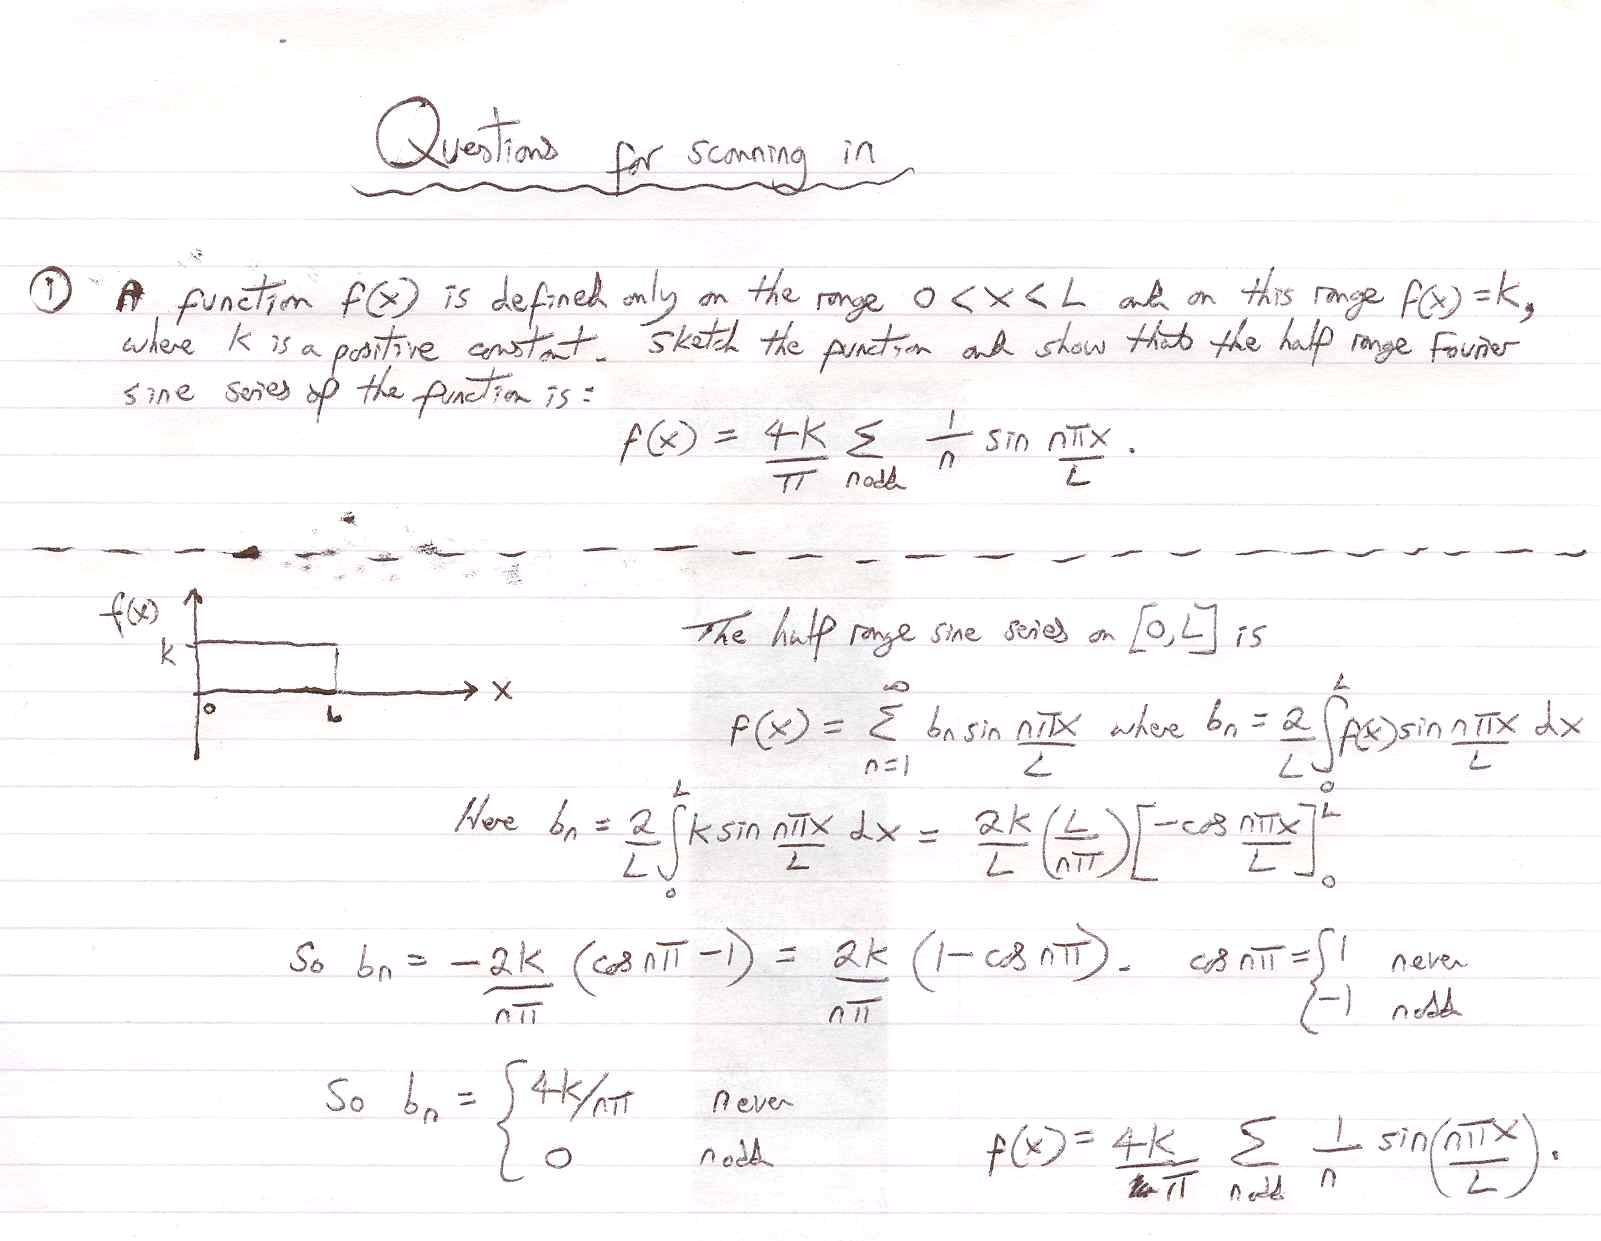 Questions for scanning in
① A function f(x) is defined only on the range 0 < x < L and on this range f(x) = k,
where k is a positive constant. Sketch the function and show that the half range Fourier
sine series of the function is:
f(x) = 4k/π Σ_{n odd} 1/n sin nπx/L .
f(x)
k
0 L x
The half range sine series on [0, L] is
f(x) = Σ_{n=1}^{∞} bₙ sin nπx/L where bₙ = 2/L ∫₀ᴸ f(x) sin nπx/L dx
Here bₙ = 2/L ∫₀ᴸ k sin nπx/L dx = 2k/L (L/nπ) [-cos nπx/L]₀ᴸ
So bₙ = -2k/nπ (cos nπ - 1) = 2k/nπ (1 - cos nπ). cos nπ = { 1 n even
-1 n odd
So bₙ = { 4k/nπ n even
0 n odd
f(x) = 4k/π Σ_{n odd} 1/n sin(nπx/L).